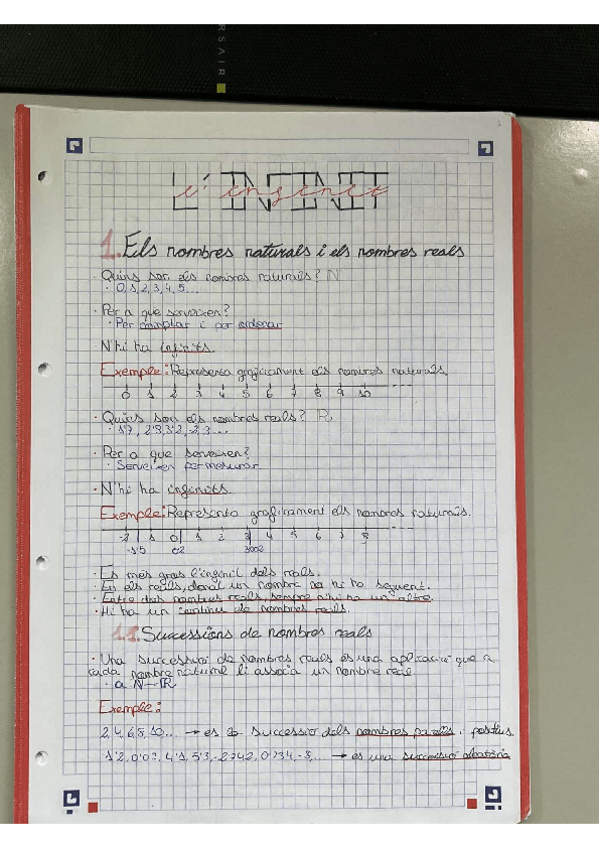 RSAIR
L'INFINIT
l'infinit
1. Els nombres naturals i els nombres reals
· Quins son els nombres naturals? N
· 0,1,2,3,4,5...
· Per a que serveixen?
· Per comptar i per ordenar
N'hi ha infinits.
Exemple: Representa gràficament els nombres naturals.
0 1 2 3 4 5 6 7 8 9 10
· Quins son els nombres reals? R
· 1'7, 2'8, 3'2, -2, 3...
· Per a que serveixen?
· Serveixen per mesurar
· N'hi ha infinits.
Exemple: Representa gràficament els nombres naturals.
0 1 2 3 4 5 6 7 8
-1'5 0'2 3'002
· Es més gran l'infinit dels reals.
· En els reals, donat un nombre no hi ha següent.
· Entre dos nombres reals, sempre n'hi ha un altre.
· Hi ha un continu de nombres reals.
1.1. Successions de nombres reals
· Una successió de nombres reals és una aplicació que a
cada nombre natural li associa un nombre real
· a: N→R
Exemple:
2,4,6,8,10... → és la successió dels nombres parells i positius
1'2, 0'02, 4'1, 5'3, -2'742, 0'734, -8,... → és una successió aleatòria